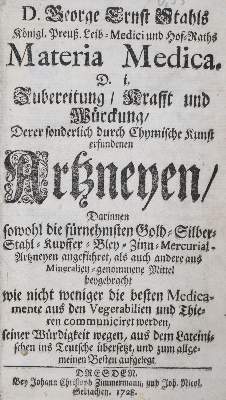 D. George Ernst Stahls
Königl. Preuß. Leib-Medici und Hof-Raths
Materia Medica.
D. i.
Zubereitung/ Krafft und
Würckung/
Derer sonderlich durch Chymische Kunst
erfundenen
Artzneyen/
Darinnen
sowohl die fürnehmsten Gold-Silber-
Stahl-Kupffer-Bley-Zinn-Mercurial-
Artzneyen angeführet, als auch andere aus
Mineralien-genommene Mittel
beygebracht
wie nicht weniger die besten Medica-
mente aus den Vegetabilien und Thie-
ren communiciret werden,
seiner Würdigkeit wegen, aus dem Lateini-
schen ins Teutsche übersetzt, und zum allge-
meinen Besten aufgelegt.
DRESDEN,
Bey Johann Christoph Zimmermann, und Joh. Nicol.
Gerlachen, 1728.